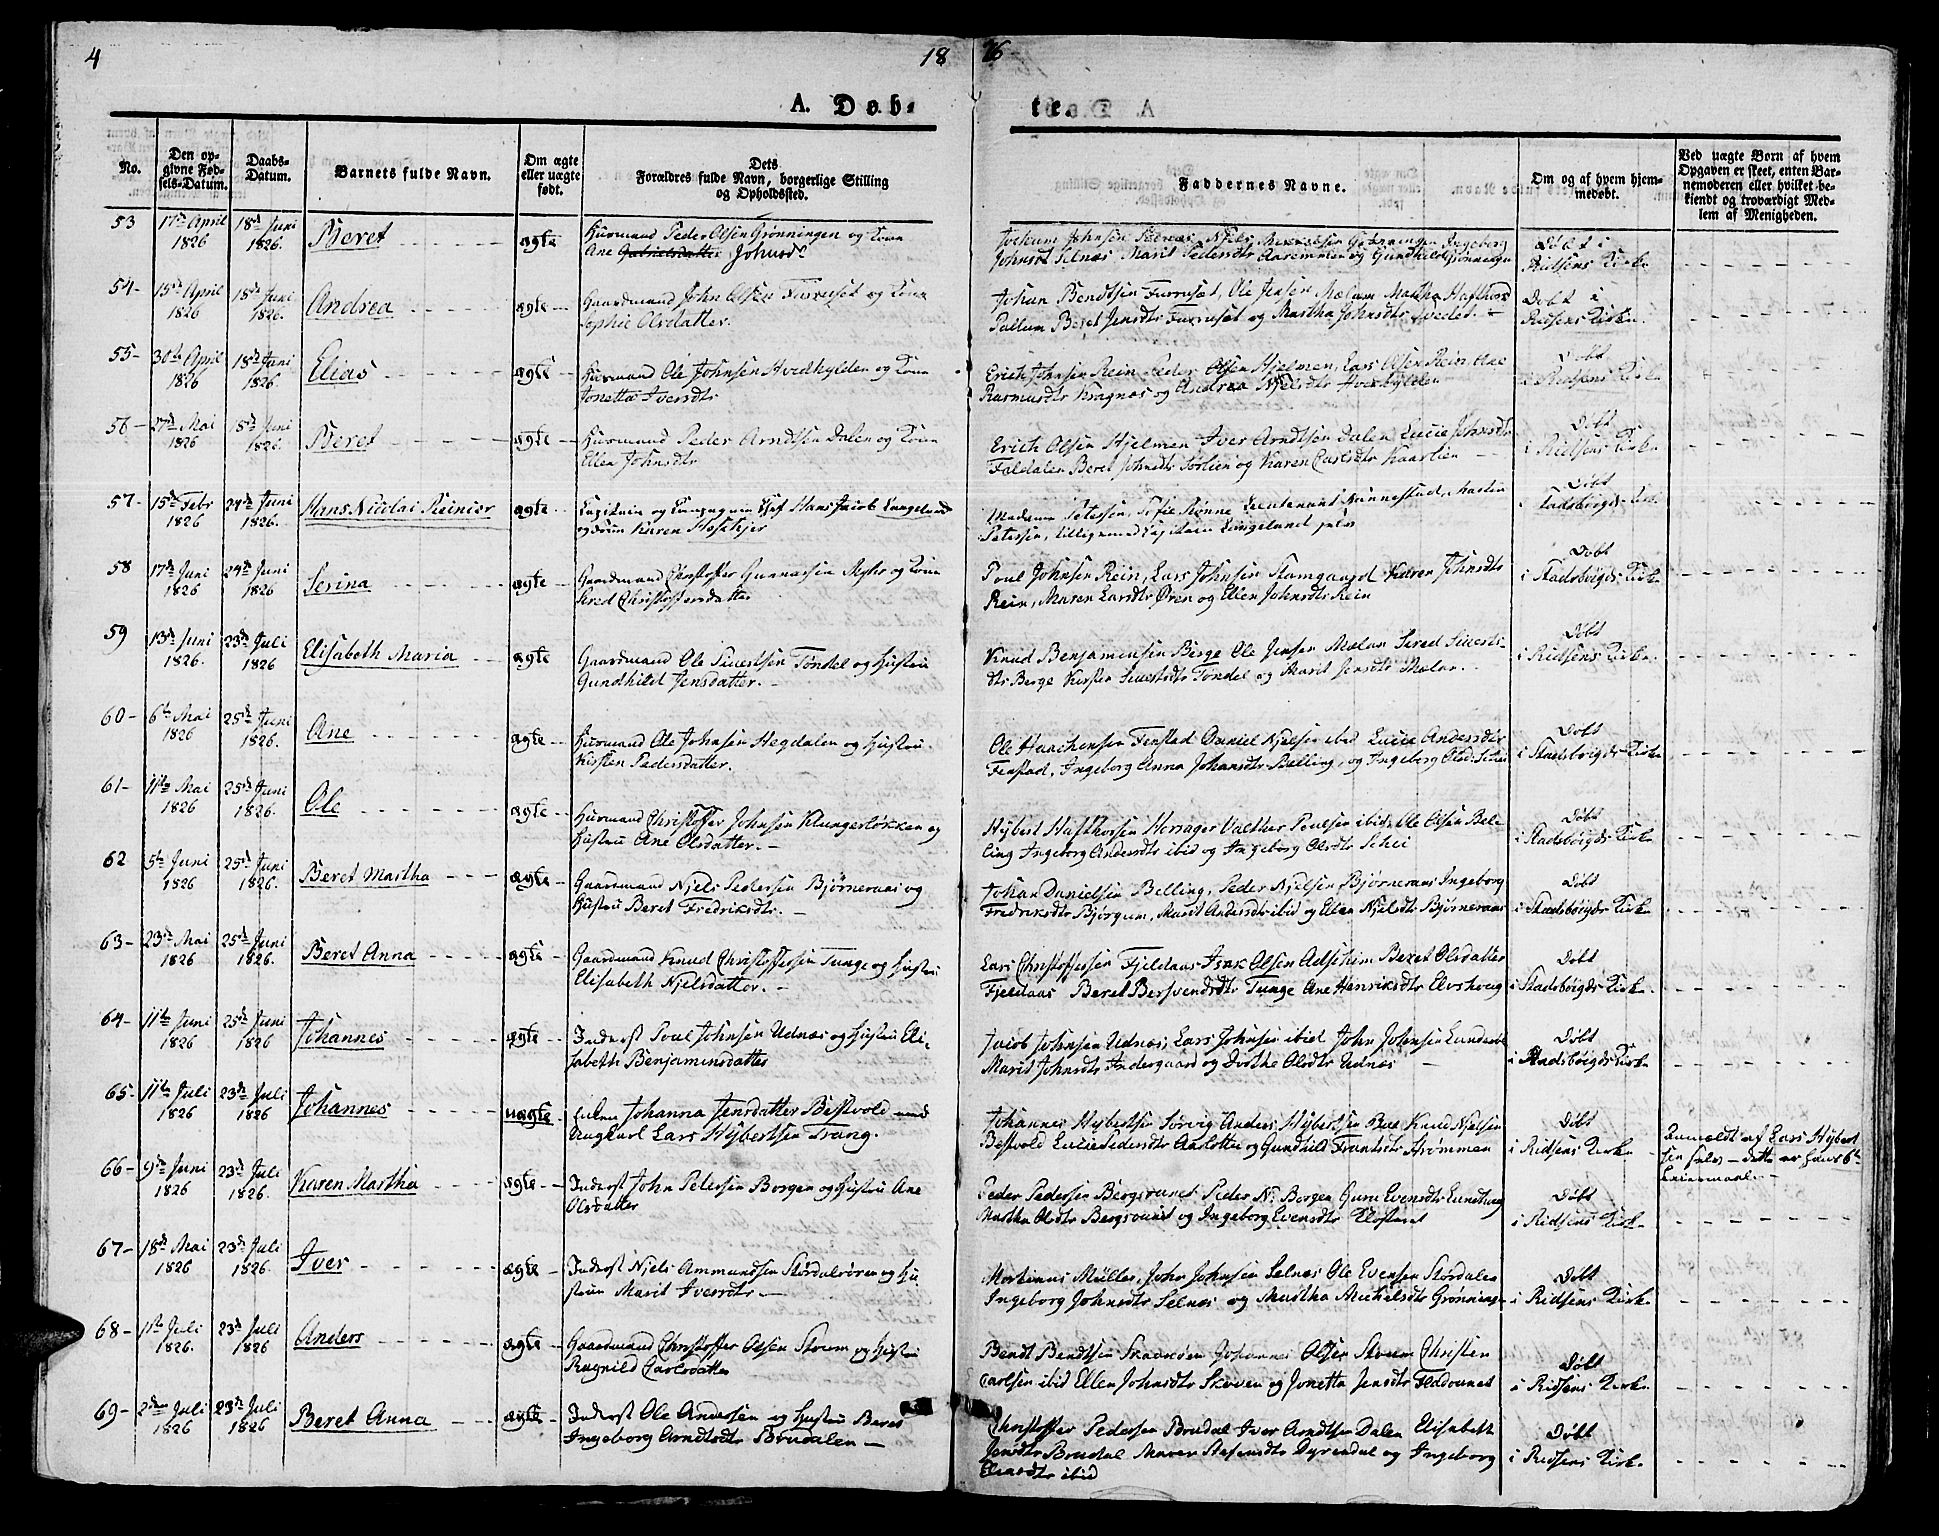 4
18
26
A. Døb-
te.
No.
Den op-
givne Fød-
sels-Datum.
Daabs-
Datum.
Barnets fulde Navn.
Om ægte
eller uægte
født.
Dets
Forældres fulde Navn, borgerlige Stilling
og Opholdssted.
Faddernes Navne.
Om og af hvem hjem-
medøbt.
Ved uægte Børn af hvem
Opgaven er skeet, enten Bar-
nemoderen eller hvilket be-
kjendt og troværdigt Med-
lem af Menigheden.
53
17de April
1826
18de Juni
1826.
Beret
ægte
Huusmand Peder Olsen Grønningen og Kone
Ane Gabrielsdatter Johnsdr
Jochum Johnsen Selnæs Grønningen Ingeborg
Johnsdt Selnæs Marit Pedersdtr og Gundhild Grønningen
Døbt i
Ridsens Kirke
54-
15de April
1826
18de Juni
1826.
Andrea
ægte
Gaardmand John Olsen Furruset og Kone
Sophie Olsdatter.
Johan Bendtsen Furruset, Ole Jensen Mælum Martha
Beret Jensdtr Furruset og Martha Johnsdtr
Døbt i
Ridsens Kirke
55-
30te April
1826
18de Juni
1826.
Elias
ægte
Huusmand Ole Johnsen Hvedhylden og Kone
Jonetta Iversdtr
Erich Johnsen Rein Peder Olsen Hjelmen, Lars Olsen Rein, Ane
Rasmusdtr Kragnæs og Andrea Njelsdtr Hvedhylden
Døbt
i Ridsens Kirke
56-
27de Mai
1826
18de Juni
1826.
Beret
ægte
Huusmand Peder Arndtsen Dalen og Kone
Ellen Johnsdtr
Erich Olsen Hjelmen Iver Arndtsen Dalen Lucie Johnsdtr
Faldalen Beret Johnsdtr Sørlien og Karen Carlsdtr Kaarlien
Døbt
i Ridsens Kirke
57-
15de Febr
1826
24de Juni
1826.
Hans Nicolai Reinier
ægte
Capitain og Compagnie Chef Hans Jacob Langeland
og Karen
Madame Petersen, Sofie Rønne Lieutenant
Petersen, tilligemed Capitain Langeland selv
Døbt
i Stadsbøigds Kirke
58
17de Juni
1826
24de Juni
1826
Serina
ægte
Gaardmand Christoffer Gunnarsen Myhr og Kone
Sered Christoffersdatter
Poul Johnsen Rein, Lars Johnsen Stamgaard Karen Johnsdtr
Rein, Maren Larsdtr Øren og Ellen Johnsdtr Rein
Døbt
i Stadsbøigds Kirke
59
13de Juni
1826.
23de Juli
1826
Elisabeth Maria
ægte
Gaardmand Ole Sivertsen Tøndel og Hustru
Gundhild Jensdatter.
Knud Benjaminsen Berge Ole Jensen Mælan Sered Siverts-
dtr Berge Kirsten Sivertsdtr Tøndel og Marit Jensdtr Mælan.
Døbt
i Ridsens Kirke
60-
6te Mai
1826
25de Juni
1826.
Ane
ægte
Huusmand Ole Johnsen Hegdalen og Hustru
Kirsten Pedersdatter.
Ole Haachensen Fenstad Daniel Njelsen ibid Lucie Andersdtr
Fenstad, Ingeborg Anna Johansdtr Belling, og Ingeborg Olsdtr Schei
Døbt
i Stadsbøigds Kirke
61-
11te Mai
1826
25de Juni
1826.
Ole
ægte
Huusmand Christoffer Johnsen Klungerløkken og
Hustru Ane Olsdatter.
Hybert Hafthorsen Horsager Valther Poulsen ibid, Ole Olsen Bel-
ling Ingeborg Andersdtr ibid og Ingeborg Olsdtr Schei
Døbt
i Stadsbøigds Kirke
62
5te Juni
1826
25de Juni
1826.
Beret Martha
ægte
Gaardmand Njels Pedersen Bjørneraas og
Hustru Beret Fredriksdtr.
Johan Danielsen Belling, Peder Njelsen Bjørneraas Ingeborg
Fredriksdtr Bjørgum, Marit Andersdtr ibid og Ellen Njelsdtr Bjørneraas
Døbt
i Stadsbøigds Kirke
63-
23de Mai
1826
25de Juni
1826.
Beret Anna
ægte
Gaardmand Knud Christoffersen Tunge og Hustru
Elisabeth Njelsdatter.
Lars Christoffersen Fjeldaas Isak Olsen Askjem Beret Olsdatter
Fjeldaas Beret Bersvendsdtr Tunge Ane Henriksdtr
Døbt
i Stadsbøigds Kirke
64-
11te Juni
1826
25de Juni
1826
Johannes
ægte
Inderst Poul Johnsen Udnæs og Hustru Eli-
sabeth Benjaminsdatter
Jacob Johnsen Udnæs, Lars Johnsen ibid John Johnsen
Marit Johnsdtr Indergaard og Dorthe Olsdtr Udnæs
Døbt
i Stadsbøigds Kirke
65-
11te Juli
1826
23de Juli
1826
Johannes
uægte
Johanna Jensdatter Bestvold med
Ungkarl Lars Hybertsen Trang.
Johannes Hybertsen Sørvig Anders Hybertsen Knud Njelsen
Bestvold Lucie Pedersdtr og Gundhild Frantsdtr Strømmen
Døbt
i Ridsens Kirke
Anmeldt af Lars Hybert-
sen selv - dette er hans 6te
Leiermaal.
66-
9de Juni
1826
23de Juli
1826.
Karen Martha
ægte
Inderst John Petersen Borgen og Hustru Ane
Olsdatter
Peder Pedersen Bergsvand Peder N. Borgen Guru Evensdtr
Martha Olsdtr Bergsvand og Ingeborg Evensdtr
Døbt
i Ridsens Kirke
67-
18de Mai
1826
23de Juli
1826.
Iver
ægte
Inderst Njels Ammundsen Størdalsøren og Hu-
struen Marit Iversdtr
Mortinus Müller, John Johnsen Selnæs Ole Evensen Størdalen
Ingeborg Johnsdtr Selnæs og Martha Michelsdtr Grønningen
Døbt
i Ridsens Kirke
68-
11te Juli
1826.
23de Juli
1826
Anders
ægte
Gaardmand Christoffer Olsen Skoven og Hustru
Ragnild Carlsdatter
Bendt Bendtsen Johannes Olsen Skoven Christen
Carlsen ibid Ellen Johnsdtr Skoven og Jonetta Jensdtr
Døbt
i Ridsens Kirke
69-
2den Juli
1826
23de Juli
1826
Beret Anna
ægte
Inderst Ole Andersen og Hustru Beret
Ingeborg Arndtsdtr Brudalen
Christoffer Pedersen Brudal Iver Arndtsen Dalen Elisabeth
Jensdtr Brudal Maren Dyrendal og Ingeborg
ibid
Døbt
i Ridsens Kirke